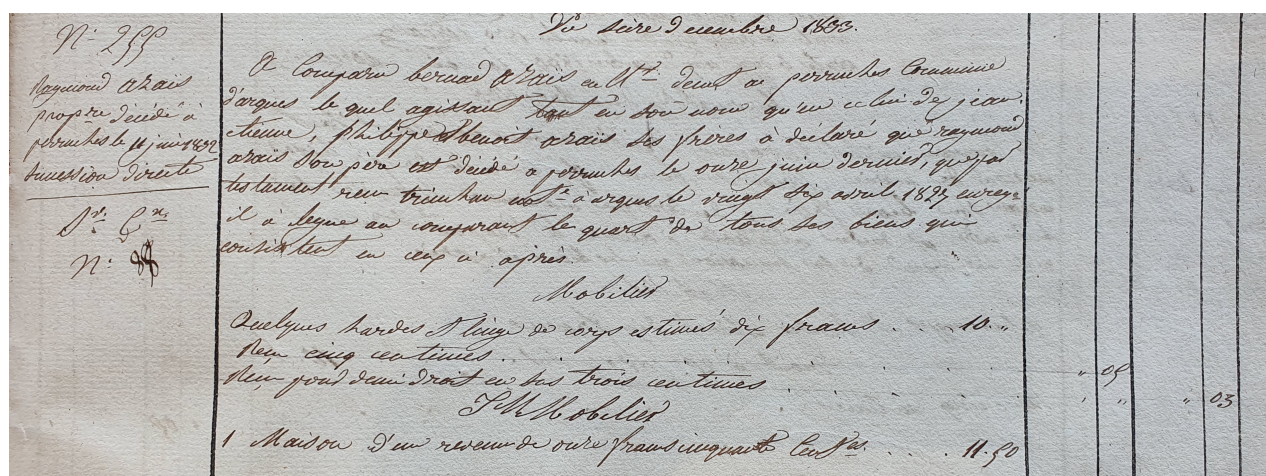 N.° 255
Raymond arais
propre décédé à
perruches le 11 juin 1832
succession directe
N.°
Du seize decembre 1833.
A Comparu bernad arais demt a perruches Commune
d'arques le quel agissant tant en son nom qu'en celui de jean
etienne, philippe et benoit arais ses frères à déclaré que raymond
arais son père est décédé a perruches le onze juin dernier, que par
testament recu trinchan nre a arques le vingt six avril 1827 enregé
il à legue au comparant le quart de tous ses biens qui
consistent en ceux ci après.
Mobilier
Quelques hardes et linge de corps estimés dix francs . . . 10. "
Recu cinq centimes . . . " 05
Recu pour demi droit en sus trois centimes . . . " " " 03
IMMobilier
1 Maison d'un revenu de onze francs cinquante Centes. . . . 11.50